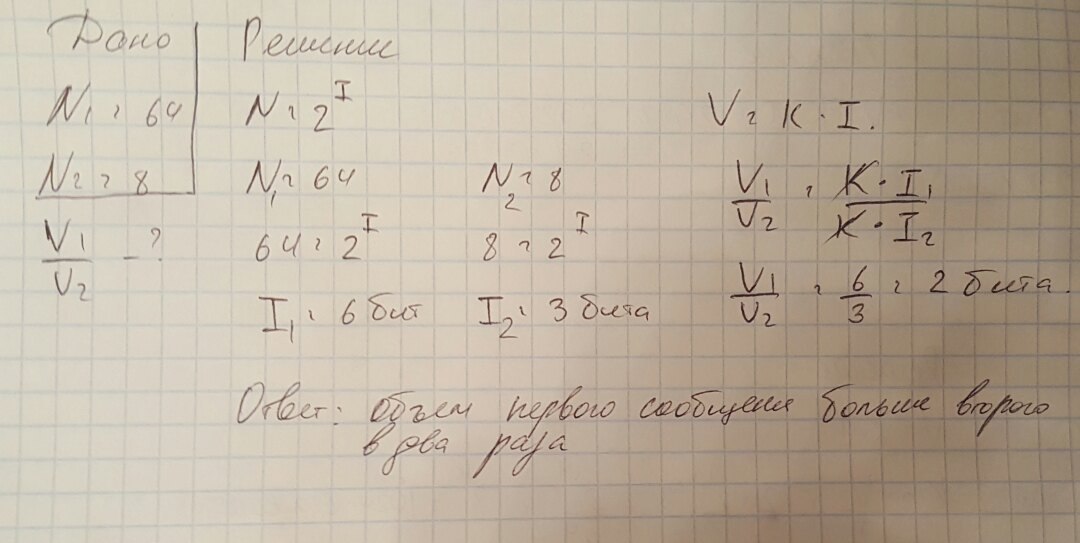 Дано
N₁ = 64
N₂ = 8
V₁/V₂ - ?
Решение
N = 2^I
N₁ = 64
64 = 2^I
I₁ = 6 бит
N₂ = 8
8 = 2^I
I₂ = 3 бита
V = K · I.
V₁/V₂ = K · I₁ / K · I₂
V₁/V₂ = 6/3 = 2 бита.
Ответ: объем первого сообщения больше второго
в два раза